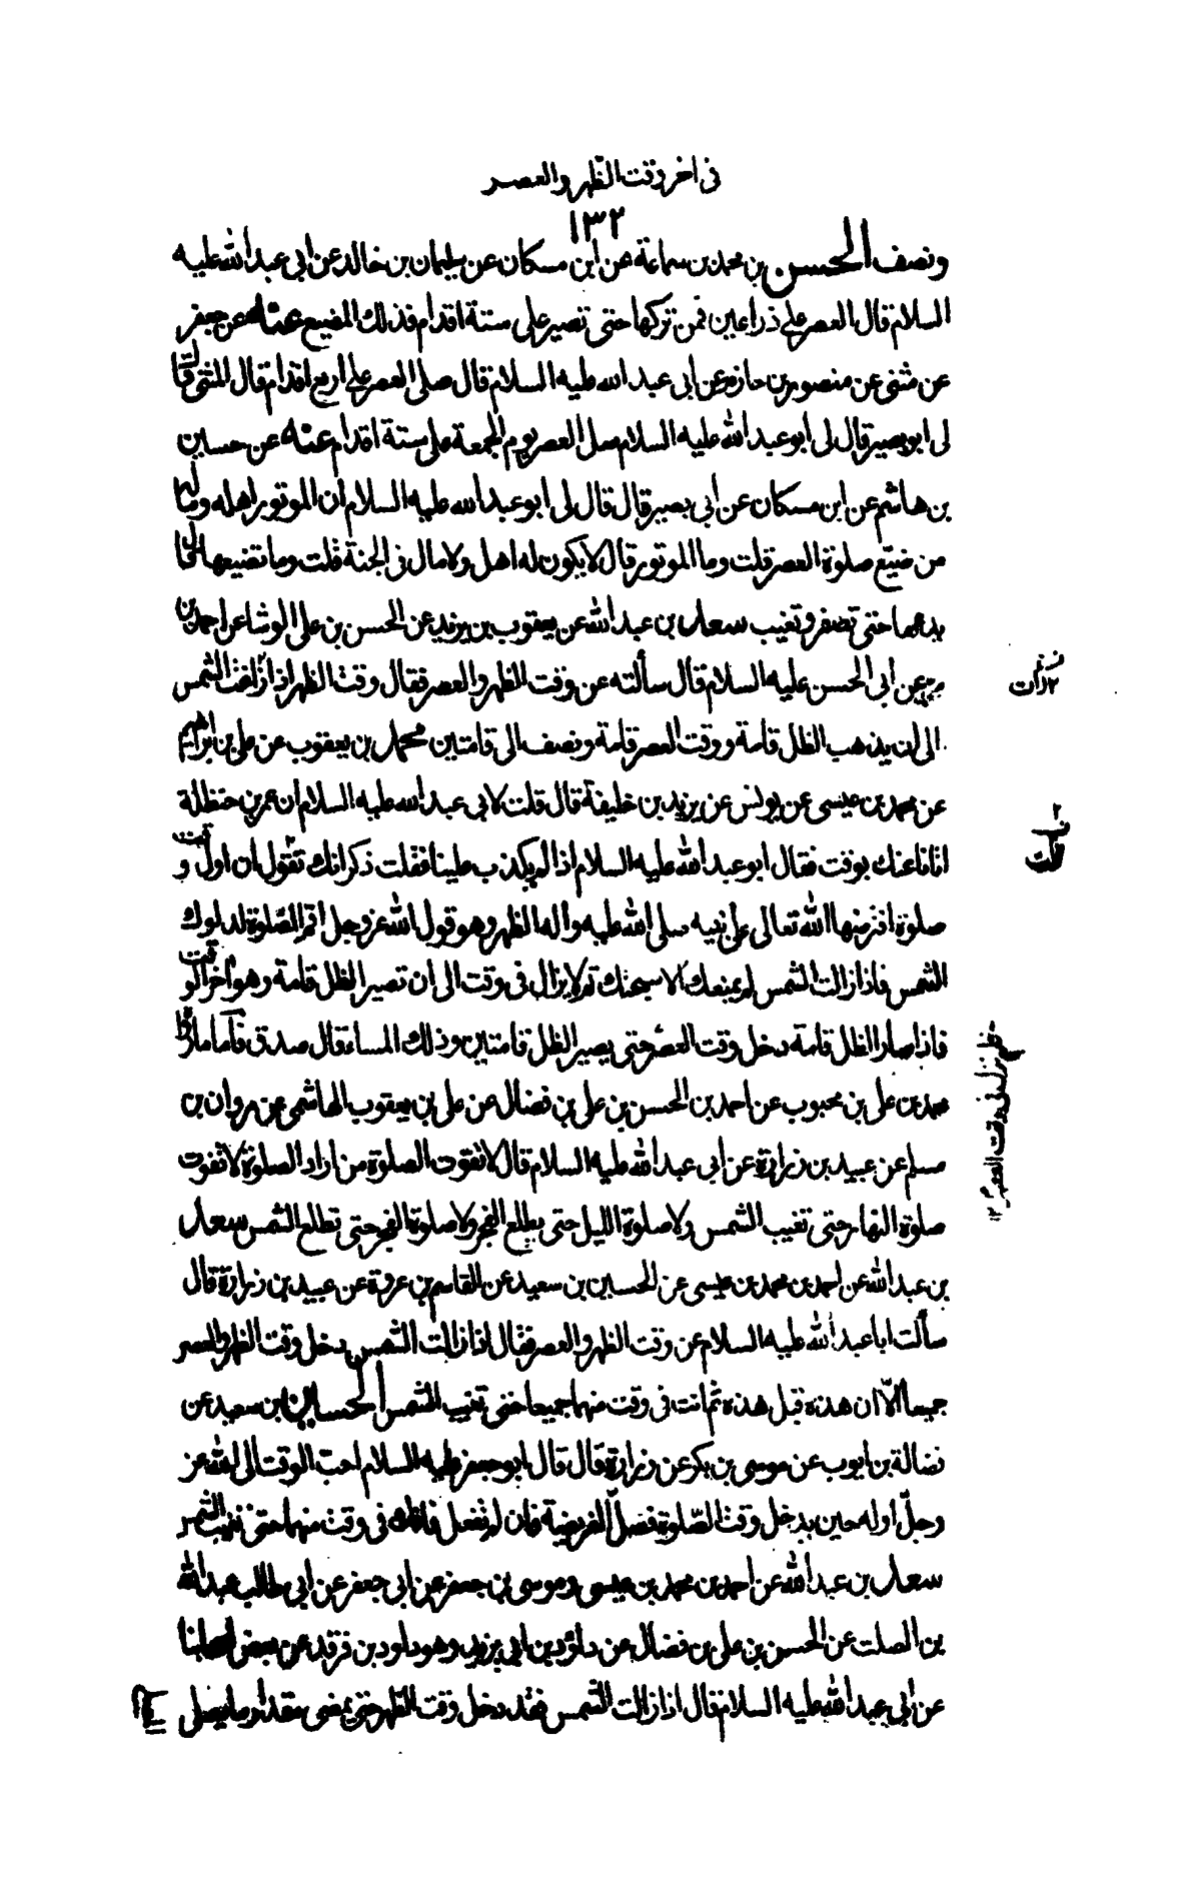 في اخر وقت الظهر والعصر
١٣٢
ونصف الحسن بن محمد بن سماعة عن ابن مسكان عن سليمان بن خالد عن ابي عبد الله عليه
السلام قال العصر على ذراعين فمن تركها حتى تصير على ستة اقدام فذلك المضيع عنه عن جعفر
عن مثنى عن منصور بن حازم عن ابي عبد الله عليه السلام قال صلى العصر على اربع اقدام قال المثنى قال
لي ابو بصير قال لي ابو عبد الله عليه السلام صل العصر يوم الجمعة على ستة اقدام عنه عن حسين
بن هاشم عن ابن مسكان عن ابي بصير قال قال لي ابو عبد الله عليه السلام ان الموتور اهله وماله
من ضيّع صلوة العصر قلت وما الموتور قال لا يكون له اهل ولا مال في الجنة قلت وما تضييعها قال
يدعها حتى تصفر وتغيب سعد بن عبد الله عن يعقوب بن يزيد عن الحسن بن علي الوشا عن احمد بن
عن ابي الحسن عليه السلام قال سألته عن وقت الظهر والعصر فقال وقت الظهر اذا زاغت الشمس
الى ان يذهب الظل قامة ووقت العصر قامة ونصف الى قامتين محمد بن يعقوب عن علي بن ابراهيم
عن محمد بن عيسى عن يونس عن يزيد بن خليفة قال قلت لابي عبد الله عليه السلام ان عمر بن حنظلة
اتانا عنك بوقت فقال ابو عبد الله عليه السلام اذا لم يكذب علينا فقلت ذكر انك تقول ان اول وقت
صلوة افترضها الله تعالى على نبيه صلى الله عليه وآله الظهر وهو قول الله عز وجل اقم الصّلوة لدلوك
الشمس فاذا زالت الشمس لم يمنعك الا سبحتك ثم لا يزال في وقت الى ان تصير الظل قامة وهو آخر الوقت
فاذا صار الظل قامة دخل وقت العصر حتى يصير الظل قامتين وذلك المساء قال صدق فامّا ما رواه
محمد بن علي بن محبوب عن احمد بن الحسن بن علي بن فضال عن علي بن يعقوب الهاشمي عن مروان بن
مسلم عن عبيد بن زرارة عن ابي عبد الله عليه السلام قال لا تفوت الصلوة من اراد الصلوة لا تفوت
صلوة النهار حتى تغيب الشمس ولا صلوة الليل حتى يطلع الفجر ولا صلوة الفجر حتى تطلع الشمس سعد
بن عبد الله عن احمد بن محمد بن عيسى عن الحسين بن سعيد عن القاسم بن عروة عن عبيد بن زرارة قال
سألت ابا عبد الله عليه السلام عن وقت الظهر والعصر فقال اذا زالت الشمس دخل وقت الظهر والعصر
جميعا الّا ان هذه قبل هذه ثم انت في وقت منهما جميعا حتى تغيب الشمس الحسين بن سعيد عن
فضالة بن ايوب عن موسى بن بكر عن زرارة قال قال ابو جعفر عليه السلام احب الوقت الى الله عز
وجلّ اوله حين يدخل وقت الصّلوة فصل الفريضة فان لم تفعل فانك في وقت منهما حتى تغيب الشمس
سعد بن عبد الله عن احمد بن محمد بن عيسى وموسى بن جعفر عن ابي جعفر عن ابي طالب عبد الله
بن الصلت عن الحسن بن علي بن فضال عن داود بن ابي يزيد وهو داود بن فرقد عن بعض اصحابنا
عن ابي عبد الله عليه السلام قال اذا زالت الشمس فقد دخل وقت الظهر حتى يمضى مقدار ما يصلى
زالت
قلت
فلم نزل في وقت العصر ١٢